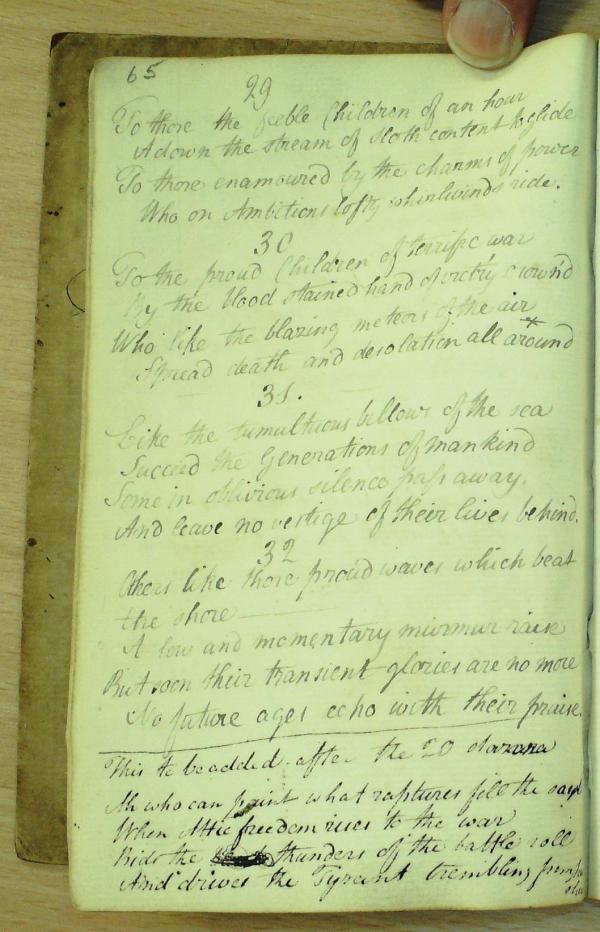 65
29
To those the feeble Children of an hour
Adown the stream of Sloth content to glide
To those enamoured by the charms of power
Who on Ambitions lofty whirlwinds ride.
30
To the proud Children of terrific war
By the blood stained hand of victry crown'd
Who like the blazing meteors of the air
Spread death and desolation all around
31.
Like the tumultuous billows of the sea
Succeed the Generations of mankind
Some in oblivious silence pass away,
And leave no vestige of their lives behind.
32
Others like those proud waves which beat
the shore
A low and momentary murmur raise
But soon their transient glories are no more
No future ages echo with their praise.
This to be added after the 20 stanza
Ah who can paint what raptures fill the
When Attic freedom rises to the war
Bids the thunders of the battle roll
And drives the Tyrant trembling from